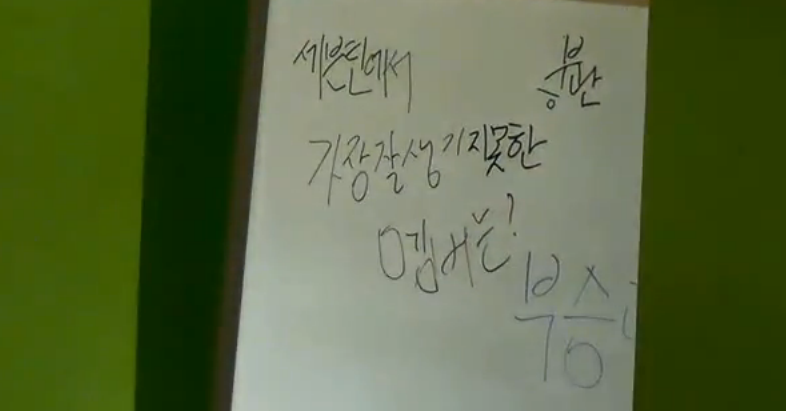 세븐틴에서
부
승관
가장잘생기지못한
멤버는?
부승